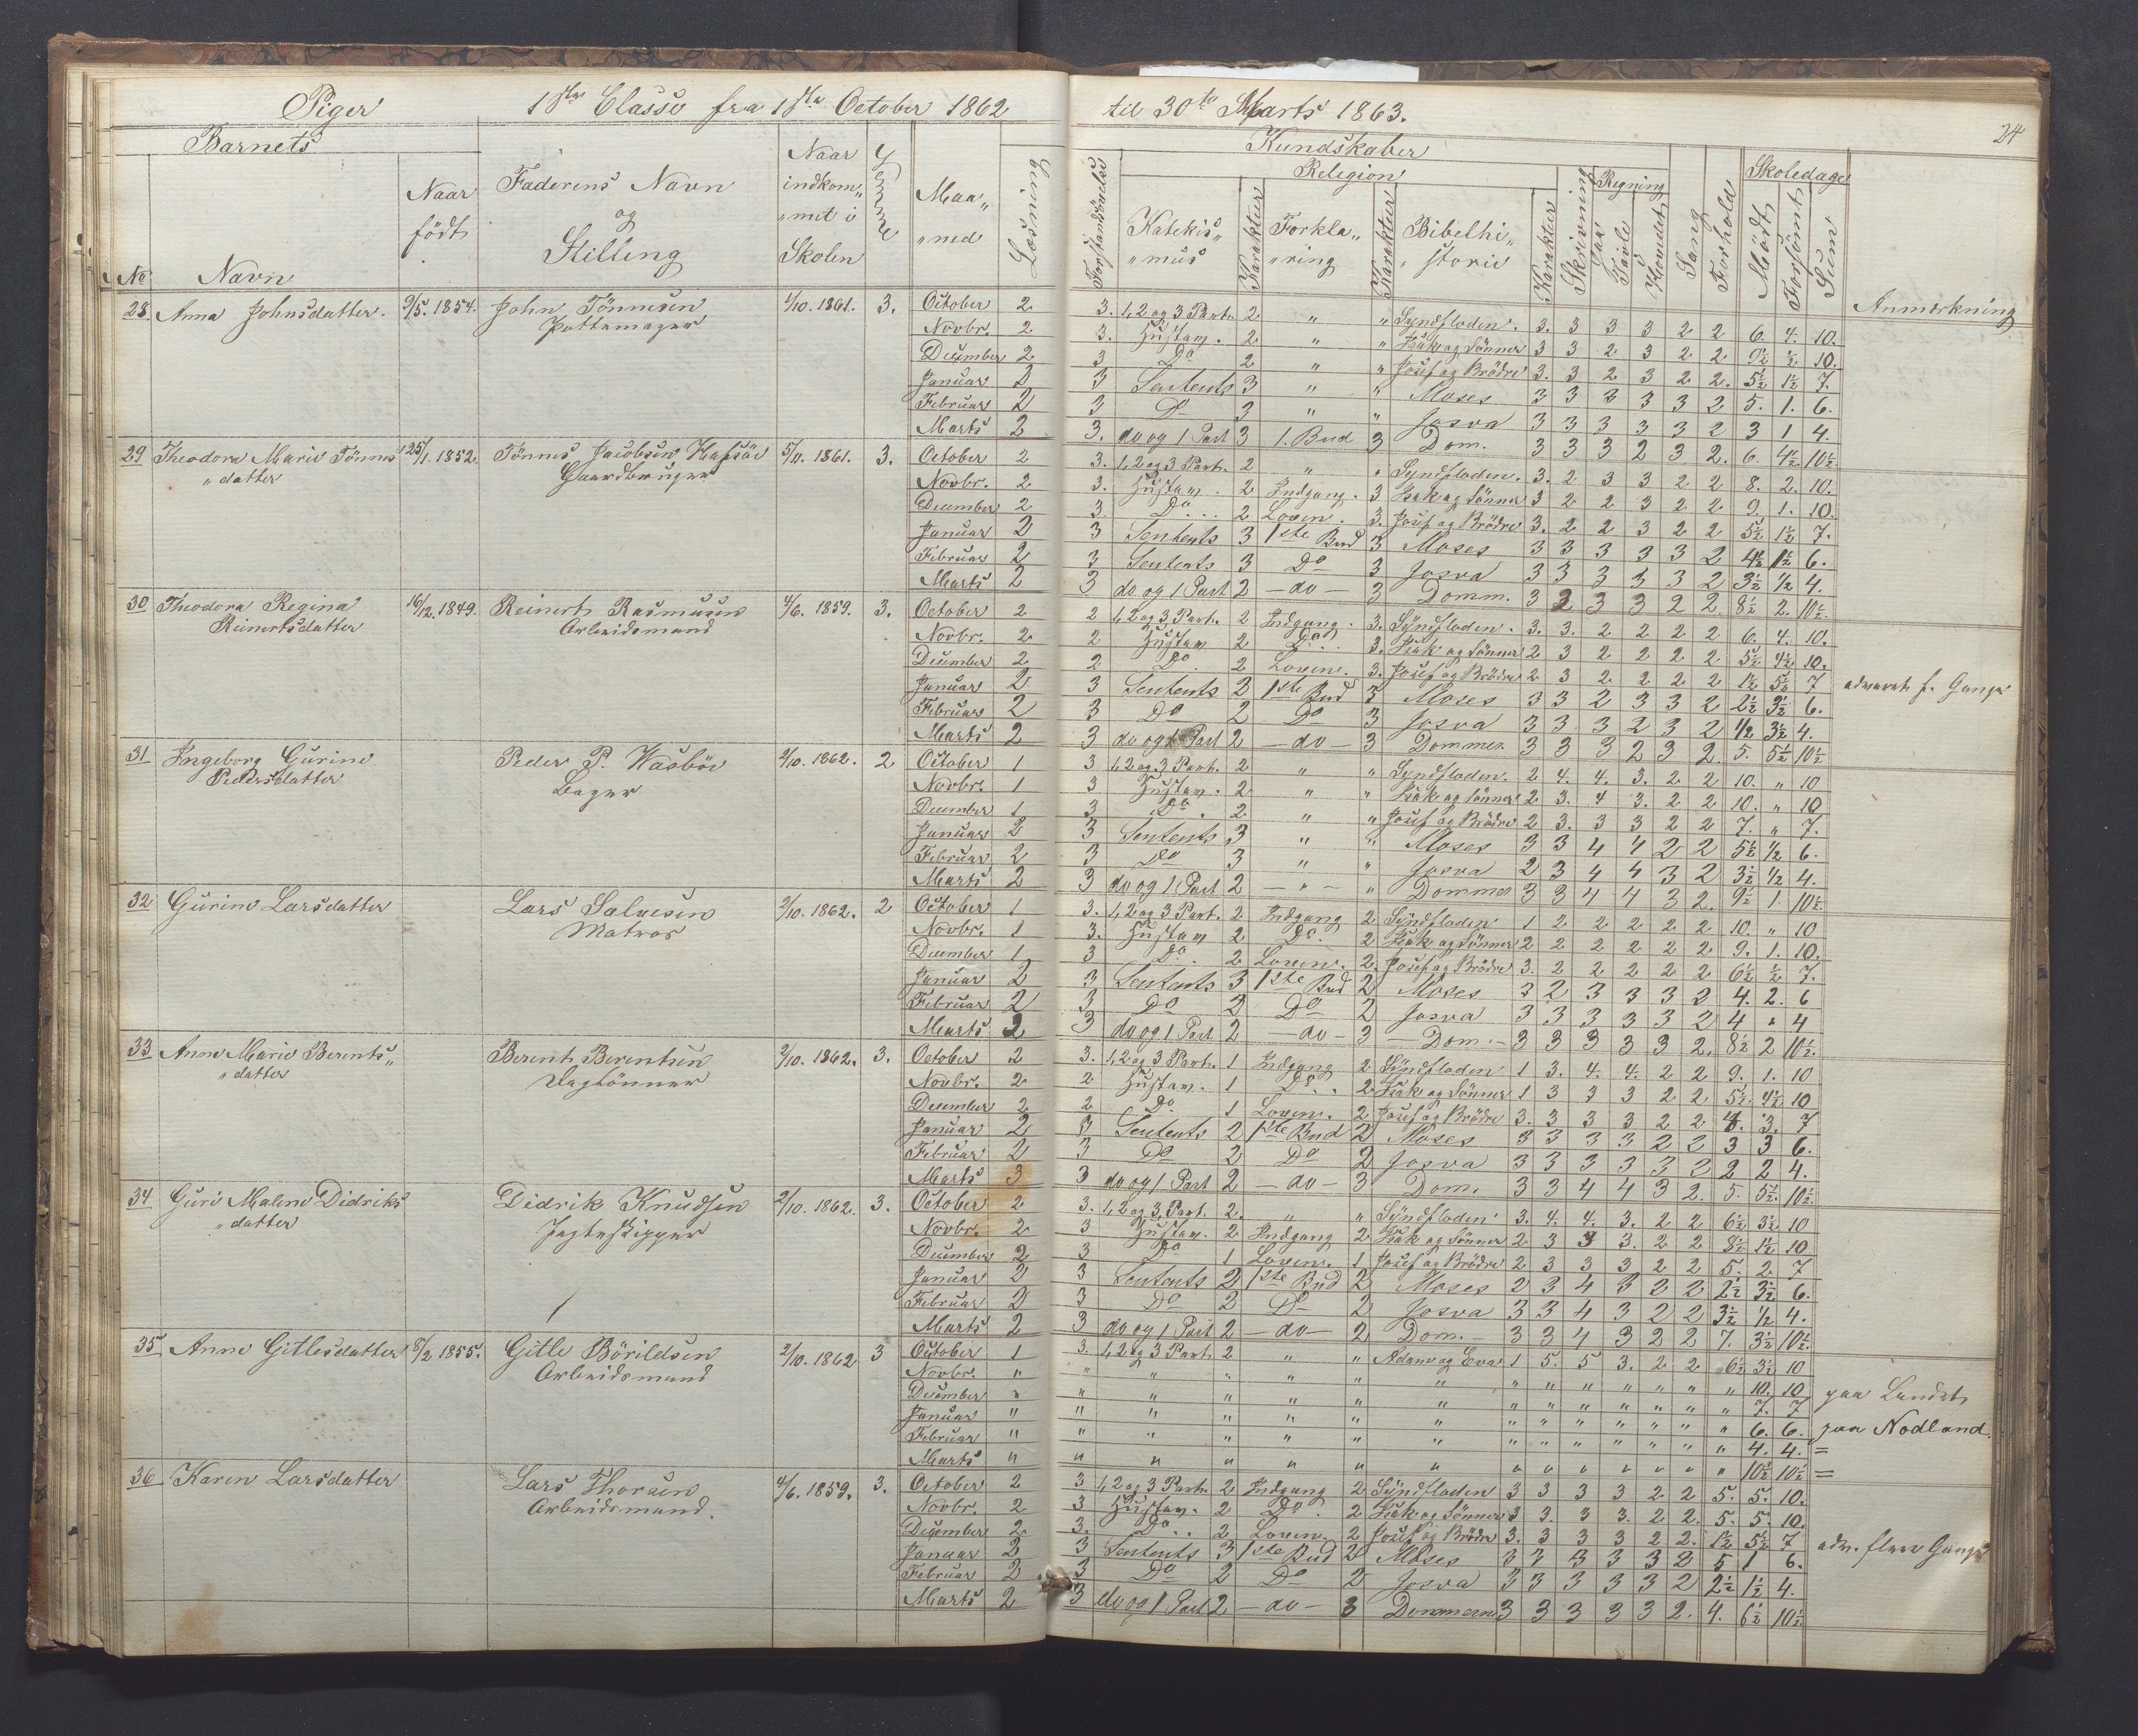 Piger 1ste Classe fra 1ste October 1862 til 30te Marts 1863.
24
Barnets
No Navn
Naar født
Faderens Navn og Stilling
Naar indkom„ „met i Skolen
Evne
Maa„ „ned
Læsning
Forstandsøvelse
Kundskaber
Religion
Katekis„ „mus
Karakter
Forkla„ „ring
Karakter
Bibelhi„ „storie
Karakter
Skrivning
Regning
Paa Tavle
I Hovedet
Sang
Forhold
Skoledage
Mødt
Forsömt
Sum
Anmærkning
28. Anna Johnsdatter. 9/5. 1854. John Tönnesen 1/10. 1861. 3. October 2 3. 1, 2 og 3 Part. 2 „ „ Syndfloden. 3. 3 3 3 2 2 6. 4. 10.
Pottemager Novbr. 2 3. Hustav. 2 „ „ Isak og Sönner 3 3 2 3 2 2 9½ ½ 10.
December 2 3 Do 2 „ „ Josef og Brödre 3. 3 2 3 2 2. 5½ 1½ 7.
Januar 2 3 Sentents 3 „ „ Moses 3 3 3 3 3 2 5. 1. 6.
Februar 2 3 Do 3 „ „ Josva 3 3 3 3 3 2 3 1 4.
Marts 2 3. do og 1 Part 3 1. Bud 3 Dom. 3 3 3 2 3 2. 6. 4½ 10½.
29 Theodora Marie Tönnes 25/1. 1852. Tönnes Jacobsen Hafsöe 5/11. 1861. 3. October 2 3. 1, 2 og 3 Part. 2 „ „ Syndfloden. 3. 2 3 3 2 2 8. 2. 10.
„datter Gaardbruger Novbr. 2 3. Hustav. 2 Indgang. 3 Isak og Sönner 3 2 2 3 2 2 9. 1. 10.
December 2 3. Do... 2 Loven. 3. Josef og Brödre 3. 2 2 3 2 2 5½ 1½ 7.
Januar 2 3 Sentents 3 1ste Bud 3 Moses 3 3 3 3 3 2 4½ 1½ 6.
Februar 2 3 Sentents 3 Do 3 Josva 3 3 3 3 3 2 3½ ½ 4.
Marts 2 3 do og 1 Part 2 — do — 3 Domm. 3 3 3 3 2 2. 8½ 2. 10½.
30 Theodora Regina 16/12. 1849. Reinert Rasmusen 4/6. 1859. 3. October 2 2 1, 2 og 3 Part. 2 Indgang. 3. Syndfloden. 3. 3. 2 2 2 2 6. 4. 10.
Reinertsdatter Arbeidsmand Novbr. 2 2 Hustav 2 Do... 3. Isak og Sönner 2 3 2 2 2 2 5½ 4½ 10.
December 2 2 Do. 2 Loven. 3. Josef og Brödre 2 3 2 2 2 2 1½ 5½ 7 advaret f. Gange
Januar 2 3 Sentents 2 1ste Bud 3 Moses 3 3 2 3 3 2 2½ 3½ 6.
Februar 2 3 Do 2 Do 3 Josva 3 3 3 2 3 2 ½ 3½ 4.
Marts 2 3 do og 1 Part 2 — do — 3 Dommer 3 3 3 2 3 2. 5. 5½ 10½
31 Ingeborg Gurine Peder P. Vasböe 2/10. 1862. 2 October 1 3 1, 2 og 3 Part. 2 „ „ Syndfloden. 2 4. 4. 3. 2 2 10. „ 10
Pedersdatter Bager Novbr. 1 3 Hustav. 2 „ „ Isak og Sönner 2 3. 4 3. 2 2 10. „ 10
December 1 3 Do. 2 „ „ Josef og Brödre 2 3. 3 3 2 2 7. „ 7.
Januar 2 3 Sentents 3 „ „ Moses 3 3 4 4 2 2 5½ ½ 6.
Februar 2 3 Do 3 „ „ Josva 2 3 4 4 3 2 3½ ½ 4.
Marts 2 3 do og 1 Part 2 — „ — „ Dommer 3 3 4 4 3 2. 9½ 1. 10½.
32 Gurine Larsdatter Lars Salvesen 2/10. 1862. 2 October 1 3. 1, 2 og 3 Part. 2 Indgang 2 Syndfloden 1 2 2 2 2 2 10. „ 10
Matros Novbr. 1 3. Hustav 2 Do. 2 Isak og Sönner 2 2 2 2 2 2 9. 1. 10.
December 1 3 Do. 2 Loven. 2. Josef og Brödre 3. 2 2 2 2 2 6½ ½ 7.
Januar 2 3 Sentents 3 1ste Bud 2 Moses 3 2 3 3 3 2 4. 2. 6
Februar 2 3 Do 2 Do 2 Josva 3 3 3 3 3 2 4 „ 4
Marts 2 3 do og 1 Part 2 — do — 3 — Dom. — 3 3 3 3 3 2. 8½ 2 10½.
33 Anne Marie Berents„ Berent Berentsen 2/10. 1862. 3. October 2 3. 1, 2 og 3 Part. 1 Indgang 2 Syndfloden 1 3. 4. 4. 2 2 9. 1. 10
„datter Daglönner Novbr. 2 2 Hustav. 1 Do.. 2 Isak og Sönner 1 3 3 3 2 2 5½. 4½ 10
December 2 2 Do 1 Loven. 2 Josef og Brödre 3. 3 3 3 2 2 4. 3. 7
Januar 2 3 Sentents 2 1ste Bud 2 Moses 3 3 3 3 2 2 3 3 6.
Februar 2 3 Do 2 Do 2 Josva 3 3 3 3 3 2 2 2 4.
Marts 3 3 do og 1 Part 2 — do — 3 Dom. 3 3 4 4 3 2. 5. 5½. 10½.
34 Guri Malene Didriks Didrik Knudsen 2/10. 1862. 3. October 2 3. 1, 2 og 3 Part. 2. „ „ Syndfloden 3. 4. 4. 3. 2 2 6½ 3½ 10
„datter Jagteskipper Novbr. 2 3 Hustav. 2 Indgang 2 Isak og Sönner 2 3 3 3. 2 2 8½ 1½ 10
December 2 3 Do 1 Loven. 1 Josef og Brödre 2 3 3 3 2 2 5. 2. 7
Januar 2 3 Sentents 2 1ste Bud 2 Moses 2 3 4 3 2 2 2½ 3½ 6.
Februar 2 3 Do 2 Do 2 Josva 3 3 4 3 2 2 3½ ½ 4.
Marts 2 3 do og 1 Part 2 — do — 2 Dom. — 3 3 4 3 2 2 7. 3½ 10½.
35 Anne Gitlesdatter 8/2 1855. Gitle Börildsen 2/10. 1862 3 October 1 3. 1, 2 og 3 Part. 2 „ „ Adam og Eva 1 5. 5 3. 2 2 6½ 3½ 10
Arbeidsmand Novbr. „ „ „ „ „ „ „ „ „ „ „ „ „ „ 10. 10 paa Landet
December „ „ „ „ „ „ „ „ „ „ „ „ „ „ 7. 7
Januar „ „ „ „ „ „ „ „ „ „ „ „ „ „ 6. 6. paa Nodland.
Februar „ „ „ „ „ „ „ „ „ „ „ „ „ „ 4. 4. =
Marts „ „ „ „ „ „ „ „ „ „ „ „ „ „ 10½ 10½ =
36 Karen Larsdatter Lars Thorsen 4/6. 1859. 3. October 2 3 1, 2 og 3 Part. 2 Indgang 2 Syndfloden 3 3 3 3 2 2 5. 5. 10.
Arbeidsmand. Novbr. 2 3 Hustav. 2 Do. 2 Isak og Sönner 3 3. 3 3. 2 2. 5. 5. 10
December 2 3. Do.. 2 Loven. 2 Josef og Brödre 3. 3 3 3 2 2. 1½ 5½ 7 adv. flere Gange
Januar 2 3 Sentents 3 1ste Bud 2 Moses 3 3 3 3 3 2 5 1 6.
Februar 2 3 Do 2 Do 2 Josva 3 3 3 3 3 2 2½ 1½ 4.
Marts 2 3 do og 1 Part 2 — do — 3 Dommerne 3 3 3 3 3 2. 4. 6½ 10½